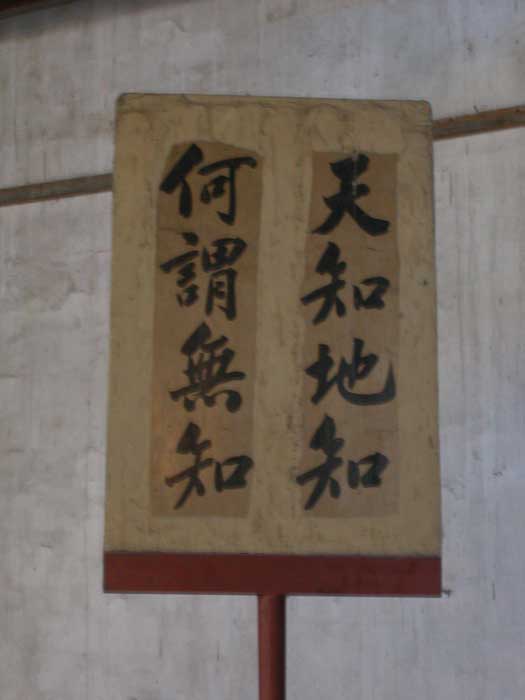 天知地知
何謂無知